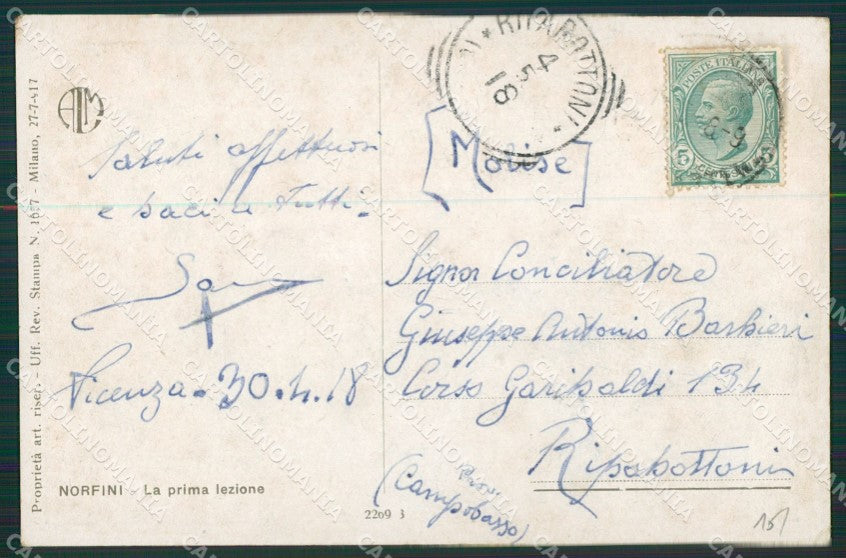 Proprietà art. riser. - Uff. Rev. Stampa N. 1657 - Milano, 27-7-917
ALM
Saluti affettuosi
e baci a tutti -
Vicenza - 30.4.18
NORFINI - La prima lezione
2269 3
RIPABOTTONI
4 5 18
POSTE ITALIANE
5
[Molise]
Signor Conciliatore
Giuseppe Antonio Barbieri
Corso Garibaldi 134
Ripabottoni
(Prov.
Campobasso)
15/
CARTOLINOMANIA